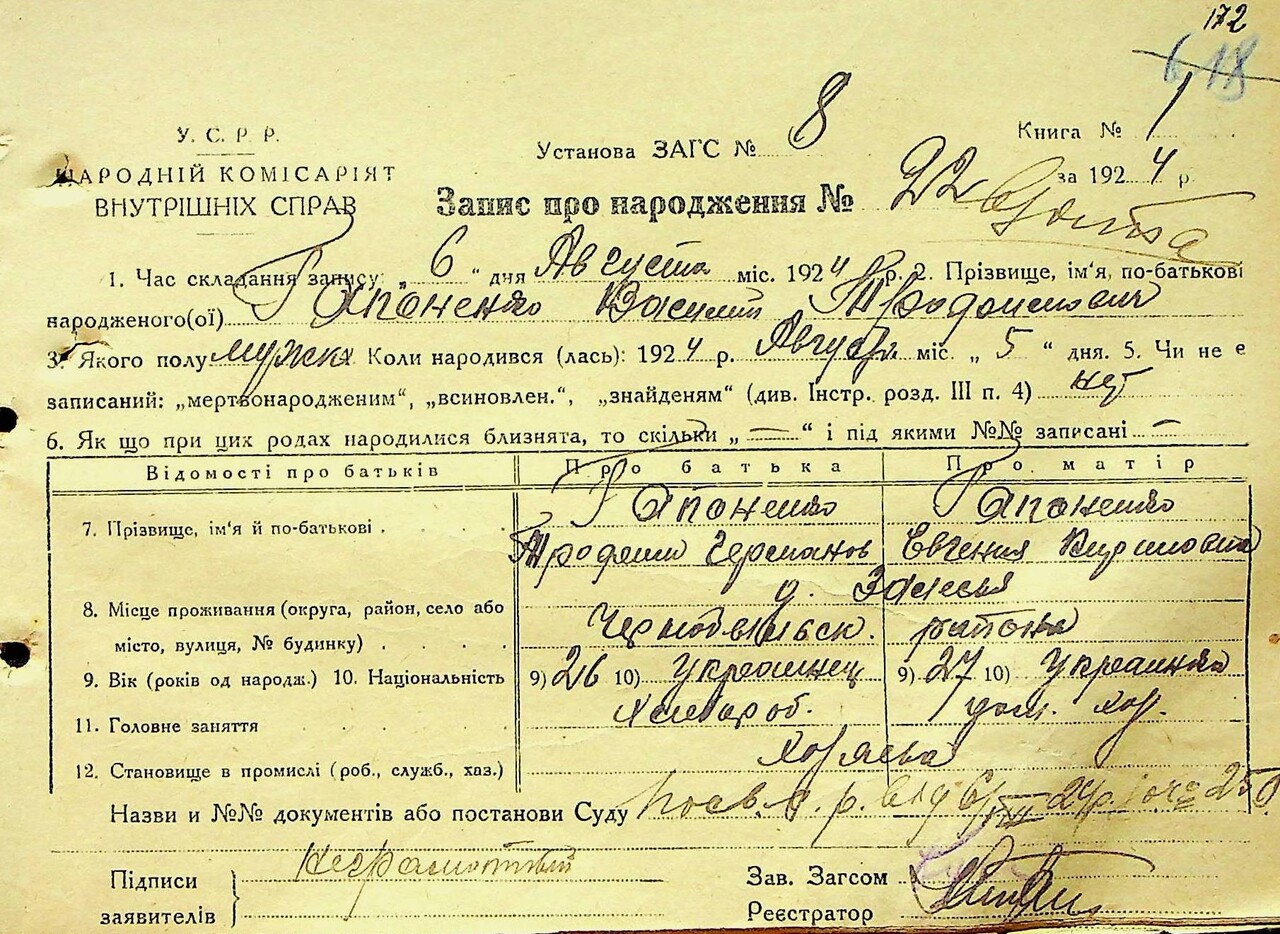 172
6 18
У. С. Р. Р.
НАРОДНІЙ КОМІСАРІЯТ
ВНУТРІШНІХ СПРАВ
Установа ЗАГС № 8
Книга № 1
за 1924 р.
Запис про народження № 22
1. Час складання запису: „ 6 “ дня Августа міс. 1924 р. 2. Прізвище, ім'я, по-батькові
народженого(ої) Гапоненко Василий Трофимович
3. Якого полу мужск Коли народився (лась): 1924 р. Августа міс. „ 5 “ дня. 5. Чи не є
записаний: „мертвонародженим“, „всиновлен.“, „знайденям“ (див. Інстр. розд. III п. 4) нет
6. Як що при цих родах народилися близнята, то скільки „ — “ і під якими №№ записані —
Відомості про батьків Про батька Про матір
7. Прізвище, ім'я й по-батькові Гапоненко Гапоненко
Трофим Германов Евгения
8. Місце проживання (округа, район, село або д. Залесья
місто, вулиця, № будинку) Чернобыльск. района
9. Вік (років од народж.) 10. Національність 9) 26 10) Украинец 9) 27 10) Украинка
11. Головне заняття Хлебороб. дом. хоз.
12. Становище в промислі (роб., служб., хаз.) хозяева
Назви и №№ документів або постанови Суду Посв. с. р. від 6/VIII 24р.
Підписи
заявителів
неграмотный
Зав. Загсом
Реєстратор